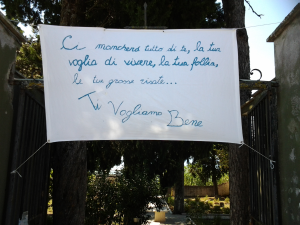 Ci mancherà tutto di te, la tua
voglia di vivere, la tua follia,
le tue grosse risate...
Ti Vogliamo Bene